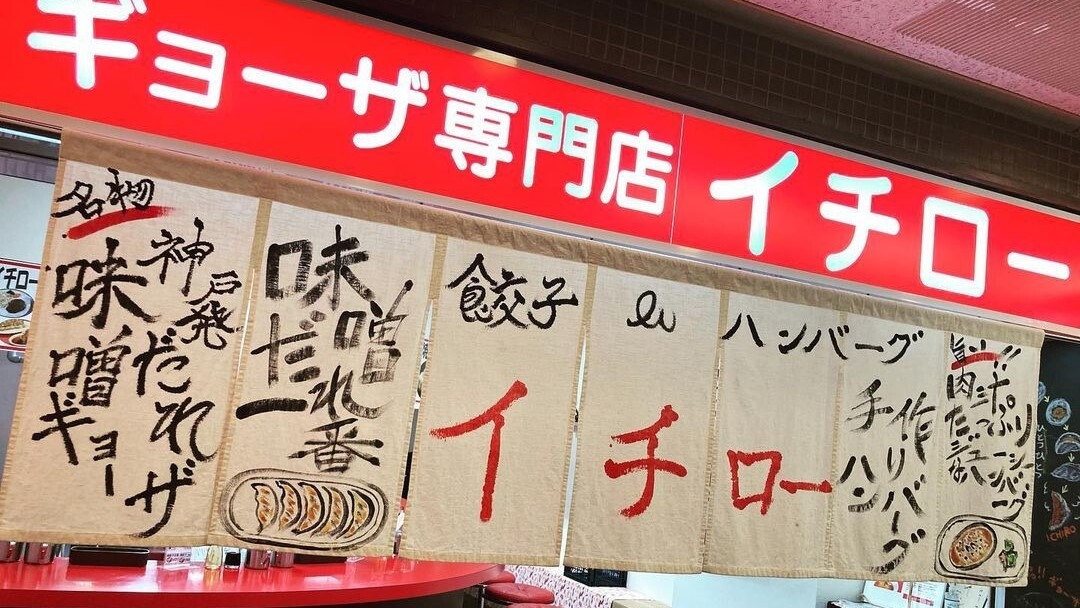 ギョーザ専門店 イチロー
名物
神戸発
味噌だれ
ギョーザ
味噌
だれ
一番
餃子 eい ハンバーグ
イチロー
手作り
ハンバーグ
旨い!!
肉汁たっぷり
ジューシー
ハンバーグ
イチロー
ひとつひとつ
ICHIRO